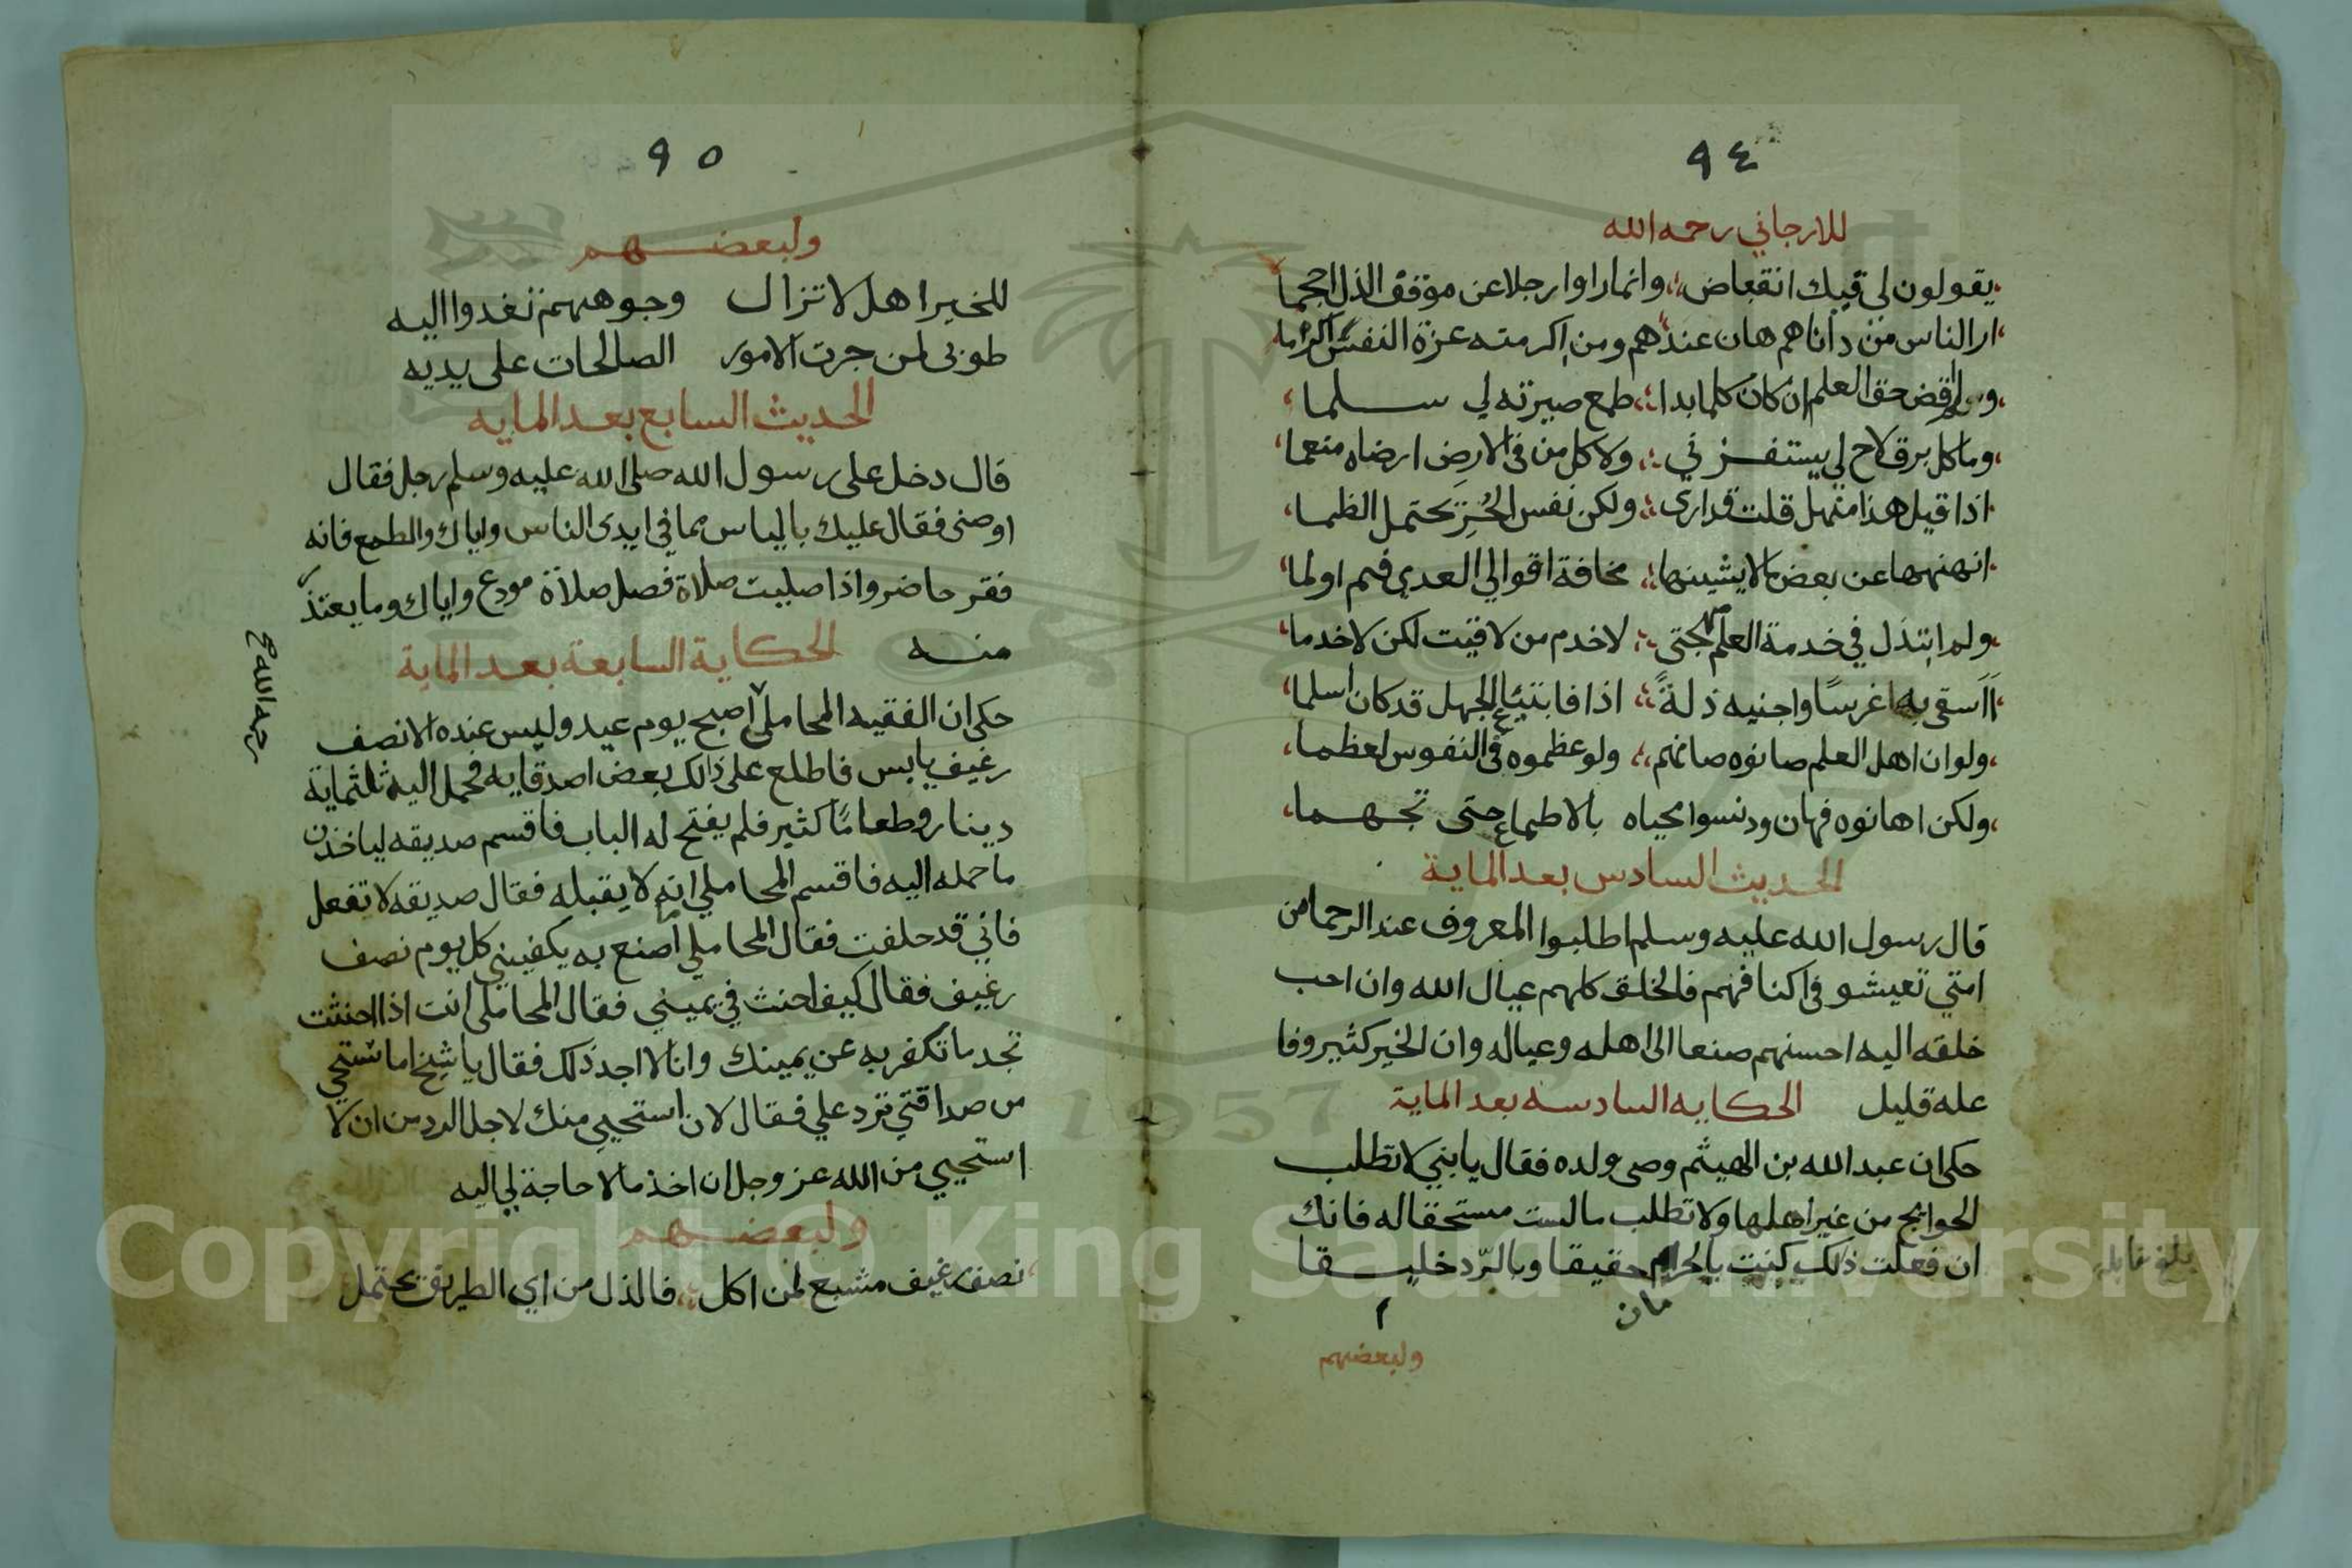 ٩٤
للارجاني رحمه الله
يقولون لي فيك انقباض وانما راوا رجلا عن موقف الذل احجما
ارا الناس من داناهم هان عندهم ومن اكرمته عزة النفس اكراما
ولم اقض حق العلم ان كان كلما بدا طمع صيرته لي سلما
وما كل برق لاح لي يستفزني ولا كل من في الارض ارضاه منعما
اذا قيل هذا منهل قلت قد ارى ولكن نفس الحر تحتمل الظما
انهنهها عن بعض ما لا يشينها مخافة اقوالي العدي فيم اولما
ولم ابتذل في خدمة العلم مهجتي لاخدم من لاقيت لكن لاخدما
ااسقي به غرسا واجنيه ذلة اذا فابتياع الجهل قد كان اسلما
ولو ان اهل العلم صانوه صانهم ولو عظموه في النفوس لعظما
ولكن اهانوه فهان ودنسوا محياه بالاطماع حتى تجهما
الحديث السادس بعد الماية
قال رسول الله عليه وسلم اطلبوا المعروف عند الرحما من
امتي تعيشو في اكنافهم فالخلق كلهم عيال الله وان احب
خلقه اليه احسنهم صنعا الى اهله وعياله وان الخير كثير وفا
عله قليل الحكايه السادسه بعد الماية
حكى ان عبد الله بن الهيثم وصى ولده فقال يا بني لا تطلب
الحوايج من غير اهلها ولا تطلب ما لست مستحقا له فانك
ان فعلت ذلك كنت بالحرمان حقيقا وبالرد خليقا
مان
ولبعضهم
بلغ مقابله
٩٥
ولبعضهم
للخير اهل لا تزال وجوههم تغدوا اليه
طوبى لمن جرت الامور الصالحات على يديه
الحديث السابع بعد المايه
قال دخل على رسول الله صلى الله عليه وسلم رجل فقال
اوصني فقال عليك بالياس مما في ايدى الناس واياك والطمع فانه
فقر حاضر واذا صليت صلاة فصل صلاة مودع واياك وما يعتذر
منه الحكاية السابعة بعد الماية
حكى ان الفقيه المحاملي اصبح يوم عيد وليس عنده الا نصف
رغيف يابس فاطلع على ذالك بعض اصدقايه فحمل اليه ثلثماية
دينار وطعاما كثير فلم يفتح له الباب فاقسم صديقه لياخذن
ما حمله اليه فاقسم المحاملي انه لا يقبله فقال صديقه لا تفعل
فاني قد حلفت فقال المحاملي ما اصنع به يكفيني كل يوم نصف
رغيف فقال كيف احنث في يميني فقال المحاملى انت اذا احنثت
تجد ما تكفر به عن يمينك وانا لا اجد ذلك فقال يا شيخ اما تستحي
من صداقتي ترد علي فقال لان استحيي منك لاجل الرد من ان لا
استحيي من الله عز وجل ان اخذ مالا حاجة لي اليه
ولبعضهم
نصف رغيف مشبع لمن اكل فالذل من اي الطريق يحتمل
رحمه الله